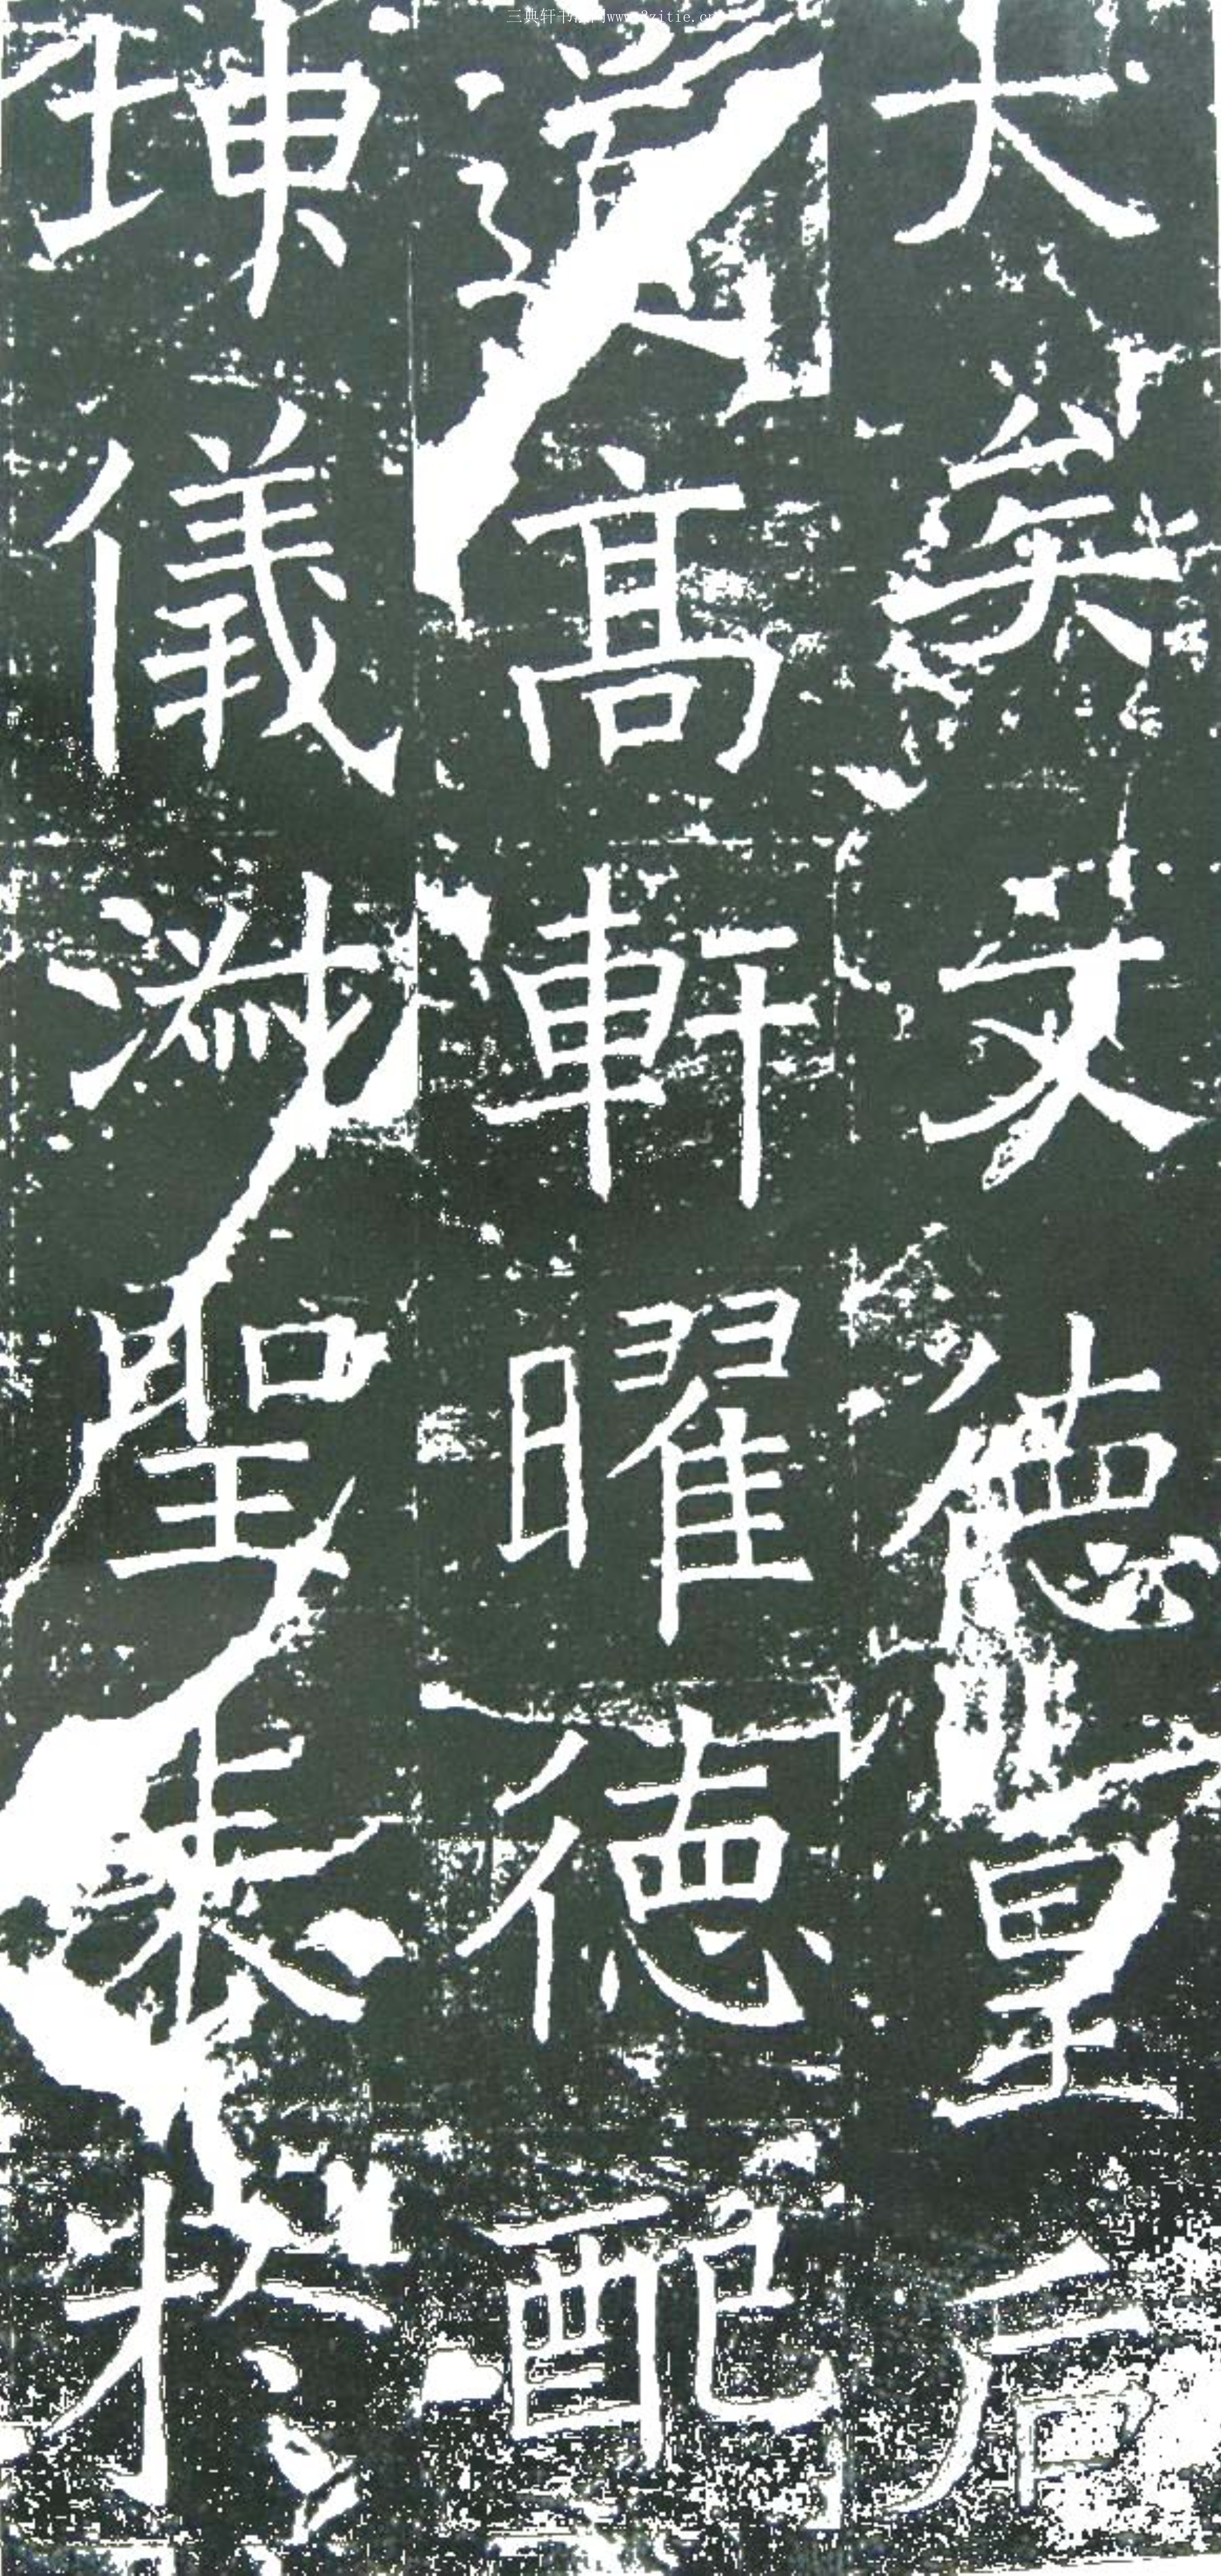 三典轩书法网www.3zitie.cn
大矣文德皇后
道高軒曜德配
坤儀淑聖表於